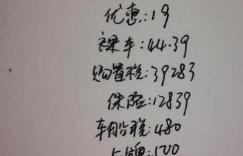 优惠:19
裸车:44.39
购置税:39283
保险:12839
车船税:480
上牌:500